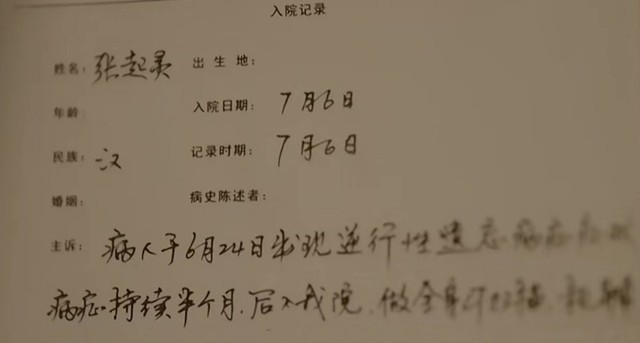 入院记录
姓名: 张起灵 出生地:
年龄: 入院日期: 7月6日
民族: 汉 记录时期: 7月6日
婚姻: 病史陈述者:
主诉: 病人于6月24日出现逆行性遗忘病症
病症持续半个月.后入我院.做全身